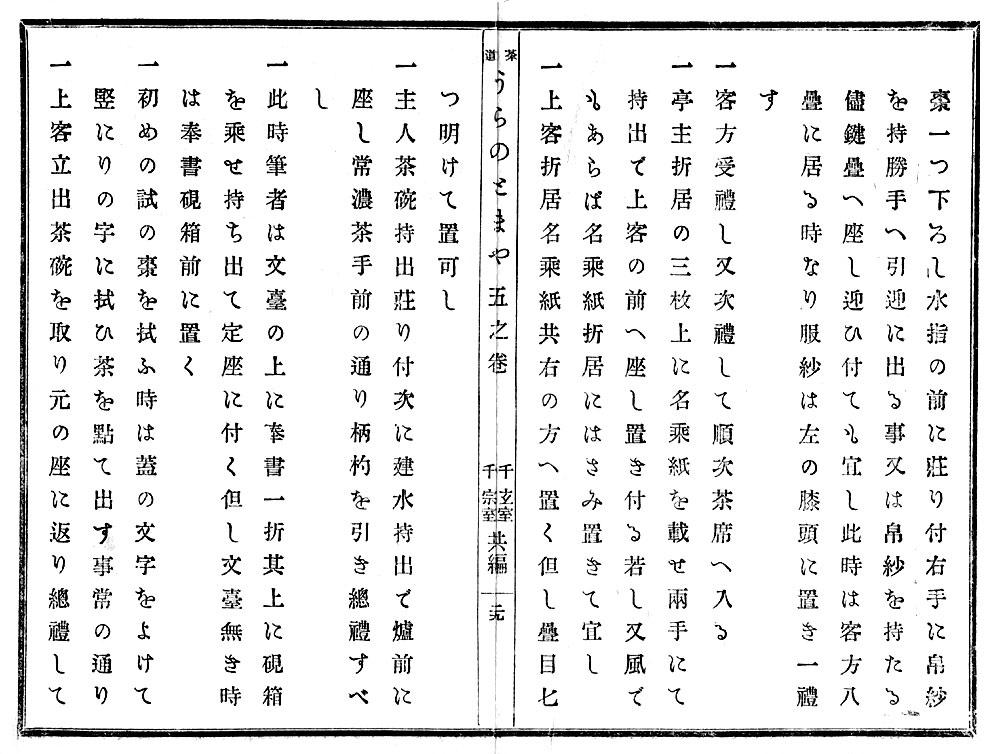 棗一つ下ろし水指の前に莊り付右手に帛紗
を持勝手へ引迎に出る事又は帛紗を持たる
儘鍵疊へ座し迎ひ付ても宜し此時は客方八
疊に居る時なり服紗は左の膝頭に置き一禮
す
一客方受禮し又次禮して順次茶席へ入る
一亭主折居の三枚上に名乘紙を載せ兩手にて
持出で上客の前へ座し置き付る若し又風で
もあらば名乘紙折居にはさみ置きて宜し
一上客折居名乘紙共右の方へ置く但し疊目七
茶道
うらのとまや 五之卷
千玄室
千宗室
共編
元
つ明けて置可し
一主人茶碗持出莊り付次に建水持出で爐前に
座し常濃茶手前の通り柄杓を引き總禮すべ
し
一此時筆者は文臺の上に奉書一折其上に硯箱
を乘せ持ち出て定座に付く但し文臺無き時
は奉書硯箱前に置く
一初めの試の棗を拭ふ時は蓋の文字をよけて
竪にりの字に拭ひ茶を點て出す事常の通り
一上客立出茶碗を取り元の座に返り總禮して